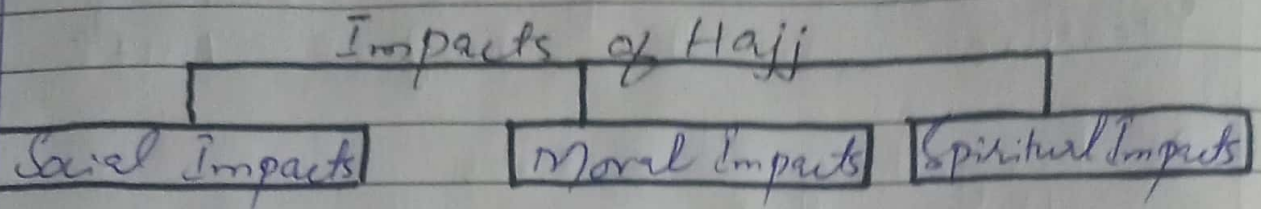 Impacts of Hajj
Social Impacts Moral Impacts Spiritual Impacts